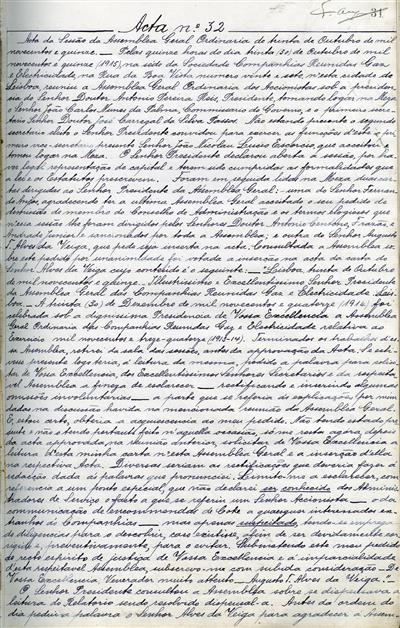 31
Acta nº 32
Acta da Sessão da Assemblea Geral Ordinaria de trinta de Outubro de mil
novecentos e quinze. — Pelas quinze horas do dia trinta (30) de Outubro de mil
novecentos e quinze (1915), na séde da Sociedade Companhias Reunidas Gaz
e Electricidade, na Rua da Boa Vista numero vinte e sete, n'esta cidade de
Lisboa, reuniu a Assemblea Geral Ordinaria dos Accionistas sob a presiden-
cia do Senhor Doutor Antonio Pereira Reis, Presidente, tomando logar na Meza
o Senhor João Carlos Nunes da Palma, Commissario do Governo, e o primeiro secre-
tario Senhor Doutor José Carregal da Silva Passos. Não estando presente o segundo
secretario eleito o Senhor Presidente convidou para exercer as funções d'este o pri-
meiro vice-secretario presente Senhor João Nicolau Luisso Escorcio, que acceitou
tomou logar na Meza. O Senhor Presidente declarou aberta a sessão, por ha-
ver legal representação de capital e terem sido cumpridas as formalidades que
a lei e os Estatutos prescrevem. Foram em seguida lidas na Meza duas car-
tas dirigidas ao Senhor Presidente da Assemblea Geral: uma do Senhor Fernan-
do Anjos, agradecendo ter a ultima Assemblea Geral acceitado o seu pedido de
demissão de membro do Conselho de Administração e os termos elogiosos que
n'essa sessão lhe foram dirigidos pelos Senhores Doutor Antonio Centeno, Franão, e
Andrade Junior e sanccionados por toda a Assemblea; e outra do Senhor Augusto
T. Alves da Veiga, que pede seja inserta na acta. Consultada a Assemblea so-
bre este pedido por unanimidade foi votada a inserção na acta da carta do
Senhor Alves da Veiga cujo conteúdo é o seguinte: — Lisboa, trinta de Outubro
de mil novecentos e quinze. — Illustrissimo e Excellentissimo Senhor Presidente
da Assemblea Geral das Companhias Reunidas Gaz e Electricidade. Lis-
boa. — A trinta (30) de Dezembro de mil novecentos e quatorze (1914) foi
celebrada sob a dignissima Presidencia de Vossa Excellencia a Assemblea
Geral Ordinaria das Companhias Reunidas Gaz e Electricidade relativa ao
Exercicio mil novecentos e treze-quatorze (1913-14). Terminados os trabalhos d'es-
sa Assemblea, retirei da sala das sessões, antes da approvação da Acta. Se esti-
vesse presente após a leitura da mesma, pediria a palavra para solici-
tar de Vossa Excellencia, dos Excellentissimos Senhores Secretarios e da respecta-
vel Assemblea a fineza de esclarecer — rectificando e inserindo algumas
omissões involuntarias — a parte que se referia ás explicações por mim
dadas na discussão havida na mencionada reunião da Assemblea Geral.
E, estou certo, obteria a acquiescencia ao meu pedido. Não tendo estado pre-
sente e não o tendo portanto feito n'aquella occasião, só me resta agora, depois
da acta approvada na reunião anterior, solicitar de Vossa Excellencia a
leitura d'esta minha carta n'esta Assemblea Geral e a inserção d'ella
na respectiva Acta. Diversas seriam as rectificações que deveria fazer á
redacção dada ás palavras que pronunciei. Limito-me a esclarecer, com
referencia a um ponto especial, que não declarei ser conhecido dos Adminis-
tradores de Serviço o facto a que se referiu um Senhor Accionista — o da
communicação de encommendas de Coke a quaesquer interessados ex-
tranhos ás Companhias — mas apenas suspeitado, tendo-se empregado
diligencias para o descobrir, caso existisse, afim de ser devidamente cor-
rigido e, preventivamente, para o evitar. Submettendo este meu pedido
de recto espirito de justiça de Vossa Excellencia e á imparcialidade
d'esta respeitavel Assemblea, subscrevo-me com subida consideração — De
Vossa Excellencia, Venerador muito attento — Augusto T. Alves da Veiga."
O Senhor Presidente consultou a Assemblea sobre se dispensava a
leitura do Relatorio sendo resolvido dispensal-a. Antes da ordem do
dia pediu a palavra o Senhor Alves da Veiga para agradecer á Assem-